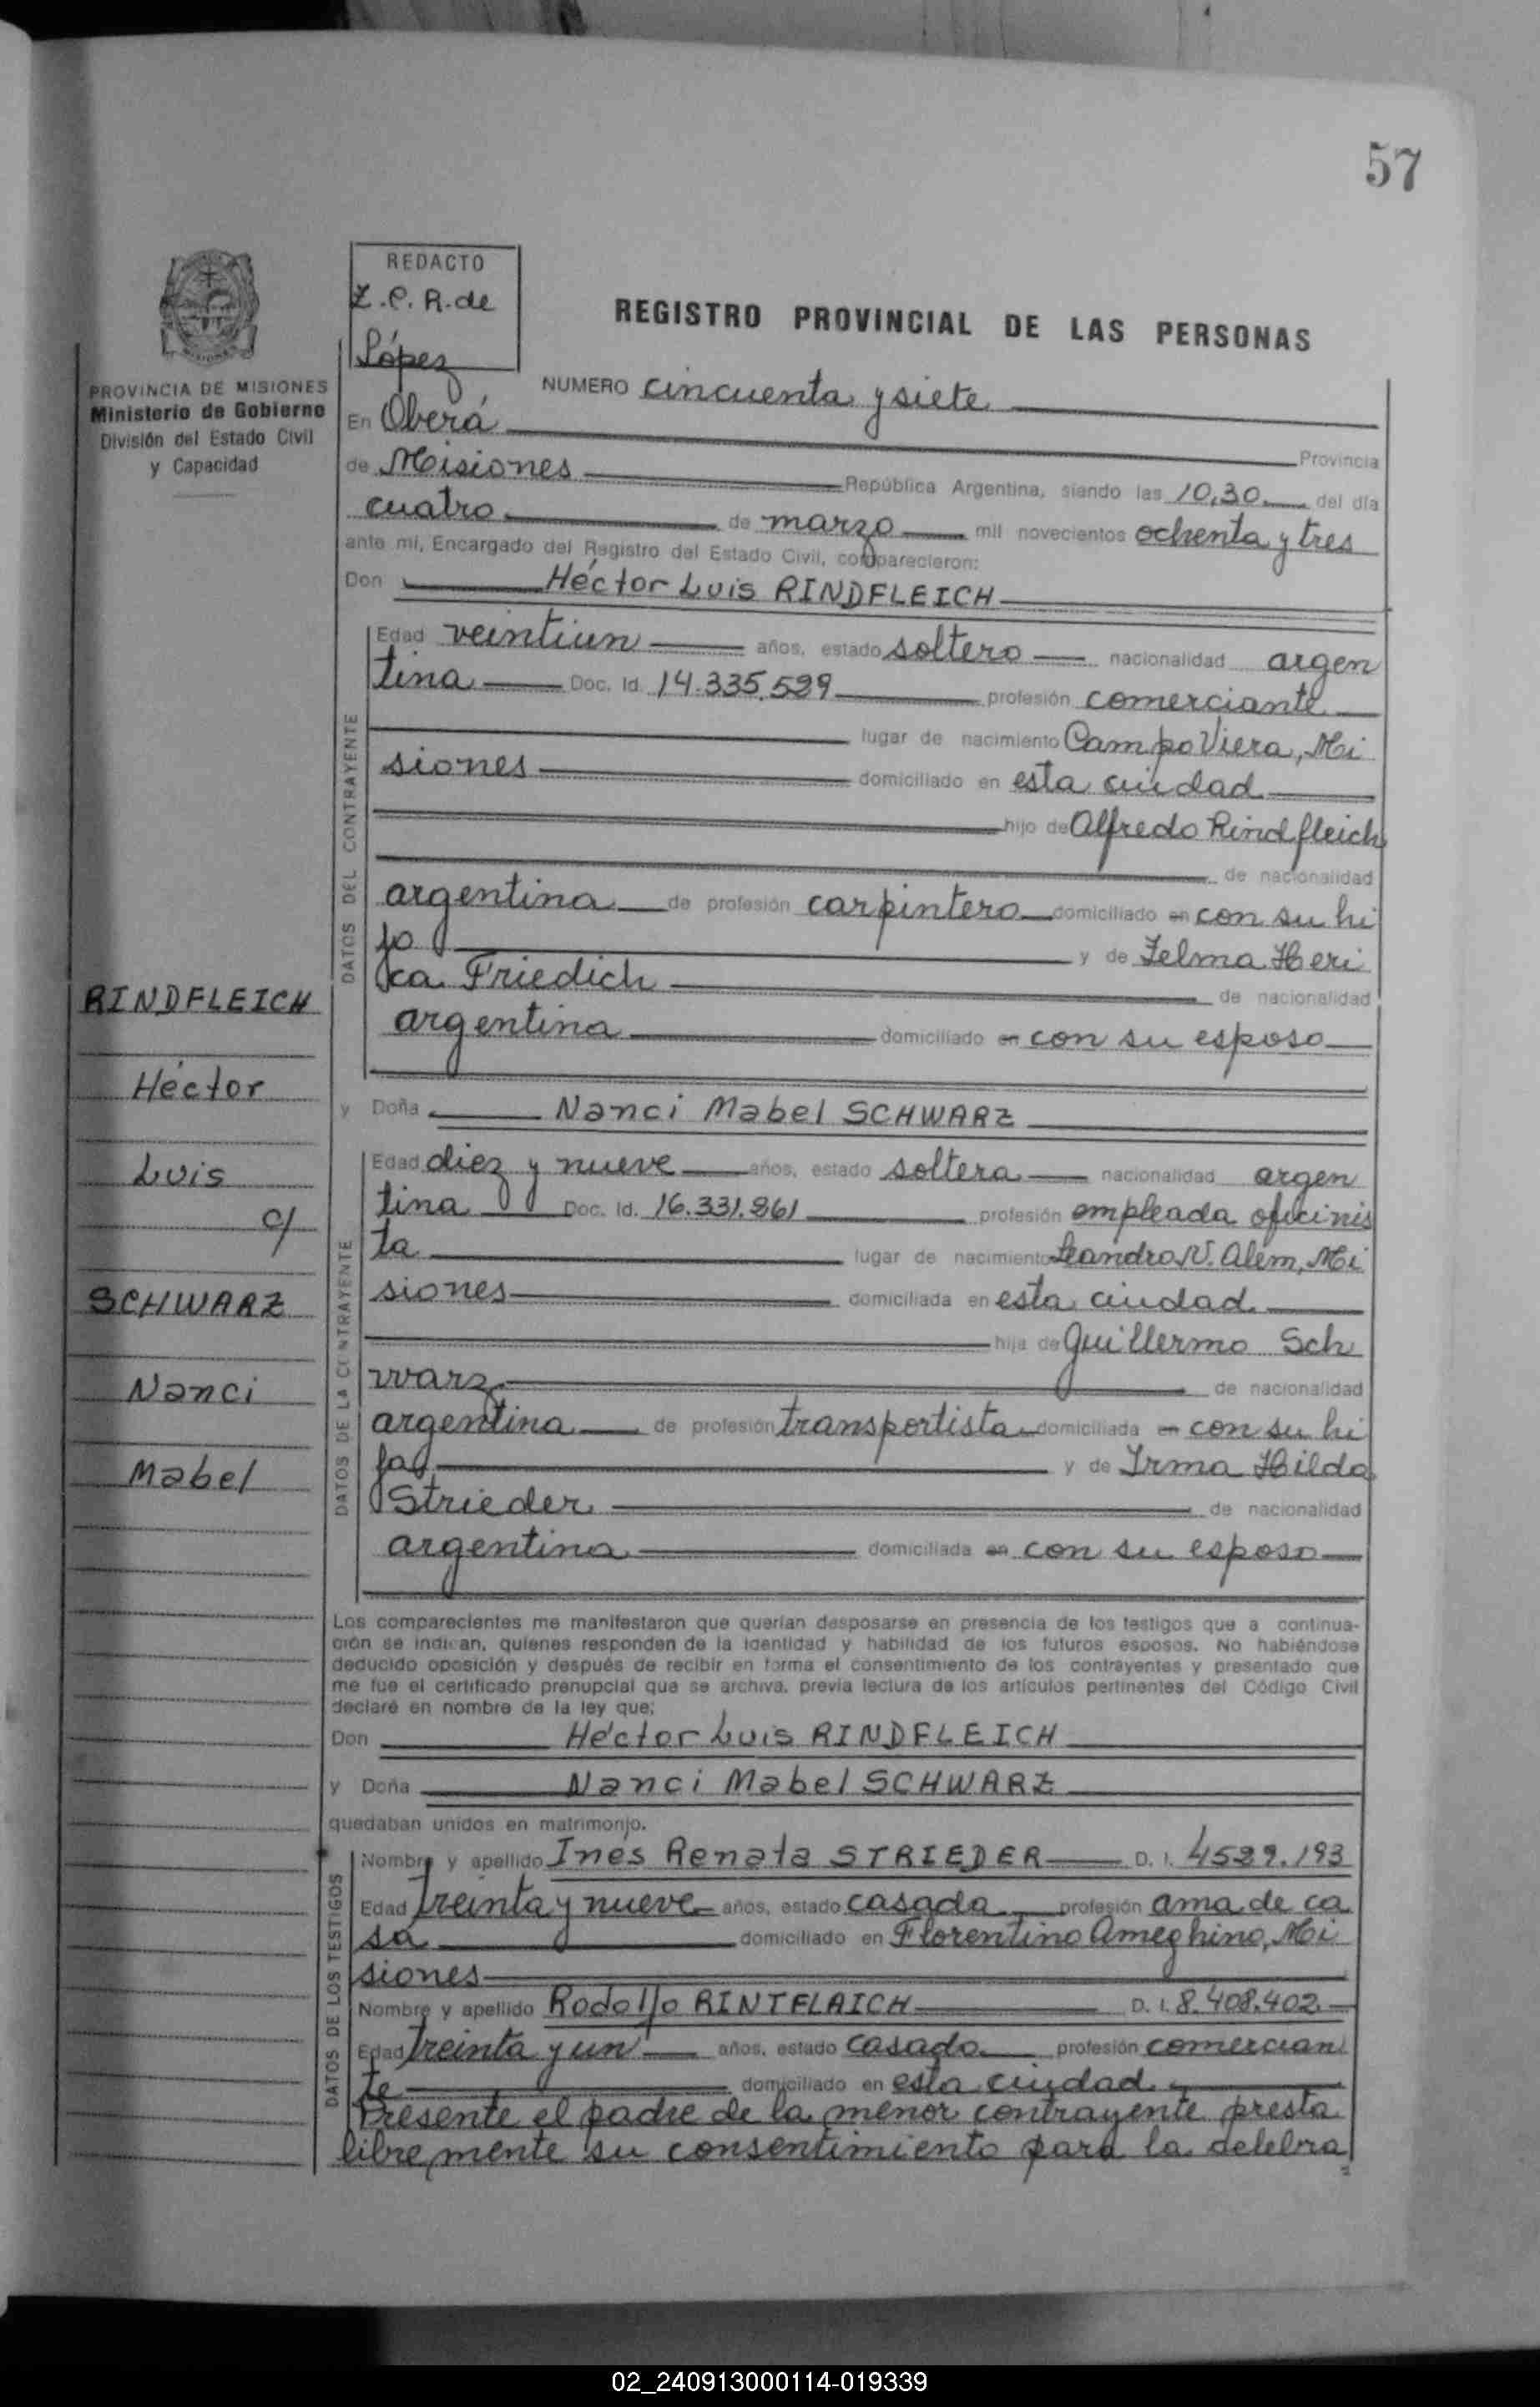 57
REDACTO
Z.C.R. de
López
REGISTRO PROVINCIAL DE LAS PERSONAS
PROVINCIA DE MISIONES
Ministerio de Gobierno
División del Estado Civil
y Capacidad
NUMERO cincuenta y siete
En Oberá Provincia
de Misiones República Argentina, siendo las 10,30 del día
cuatro de marzo mil novecientos ochenta y tres
ante mí, Encargado del Registro del Estado Civil, comparecieron:
Don Héctor Luis RINDFLEICH
DATOS DEL CONTRAYENTE
Edad veintiun años, estado soltero nacionalidad argen
tina Doc. Id. 14.335.529 profesión comerciante
lugar de nacimiento Campo Viera, Mi
siones domiciliado en esta ciudad
hijo de Alfredo Rindfleich
de nacionalidad
argentina de profesión carpintero domiciliado en con su hi
jo y de Zelma Heri
ca Friedich de nacionalidad
argentina domiciliado en con su esposo
RINDFLEICH
Héctor
Luis
c/
SCHWARZ
Nanci
Mabel
y Doña Nanci Mabel SCHWARZ
DATOS DE LA CONTRAYENTE
Edad diez y nueve años, estado soltera nacionalidad argen
tina Doc. Id. 16.331.861 profesión empleada oficinis
ta lugar de nacimiento Leandro N. Alem, Mi
siones domiciliada en esta ciudad
hija de Guillermo Sch
warz de nacionalidad
argentina de profesión transportista domiciliada en con su hi
ja y de Irma Hilda
Strieder de nacionalidad
argentina domiciliada en con su esposo
Los comparecientes me manifestaron que querían desposarse en presencia de los testigos que a continua-
ción se indican, quienes responden de la identidad y habilidad de los futuros esposos. No habiéndose
deducido oposición y después de recibir en forma el consentimiento de los contrayentes y presentado que
me fue el certificado prenupcial que se archiva, previa lectura de los artículos pertinentes del Código Civil
declaré en nombre de la ley que:
Don Héctor Luis RINDFLEICH
y Doña Nanci Mabel SCHWARZ
quedaban unidos en matrimonio.
DATOS DE LOS TESTIGOS
Nombre y apellido Inés Renata STRIEDER D. I. 4529.193
Edad treinta y nueve años, estado casada profesión ama de ca
sa domiciliado en Florentino Ameghino, Mi
siones
Nombre y apellido Rodolfo RINTFLAICH D. I. 8.408.402
Edad treinta y un años, estado casado profesión comercian
te domiciliado en esta ciudad
Presente el padre de la menor contrayente presta
libremente su consentimiento para la celebra
02_240913000114-019339